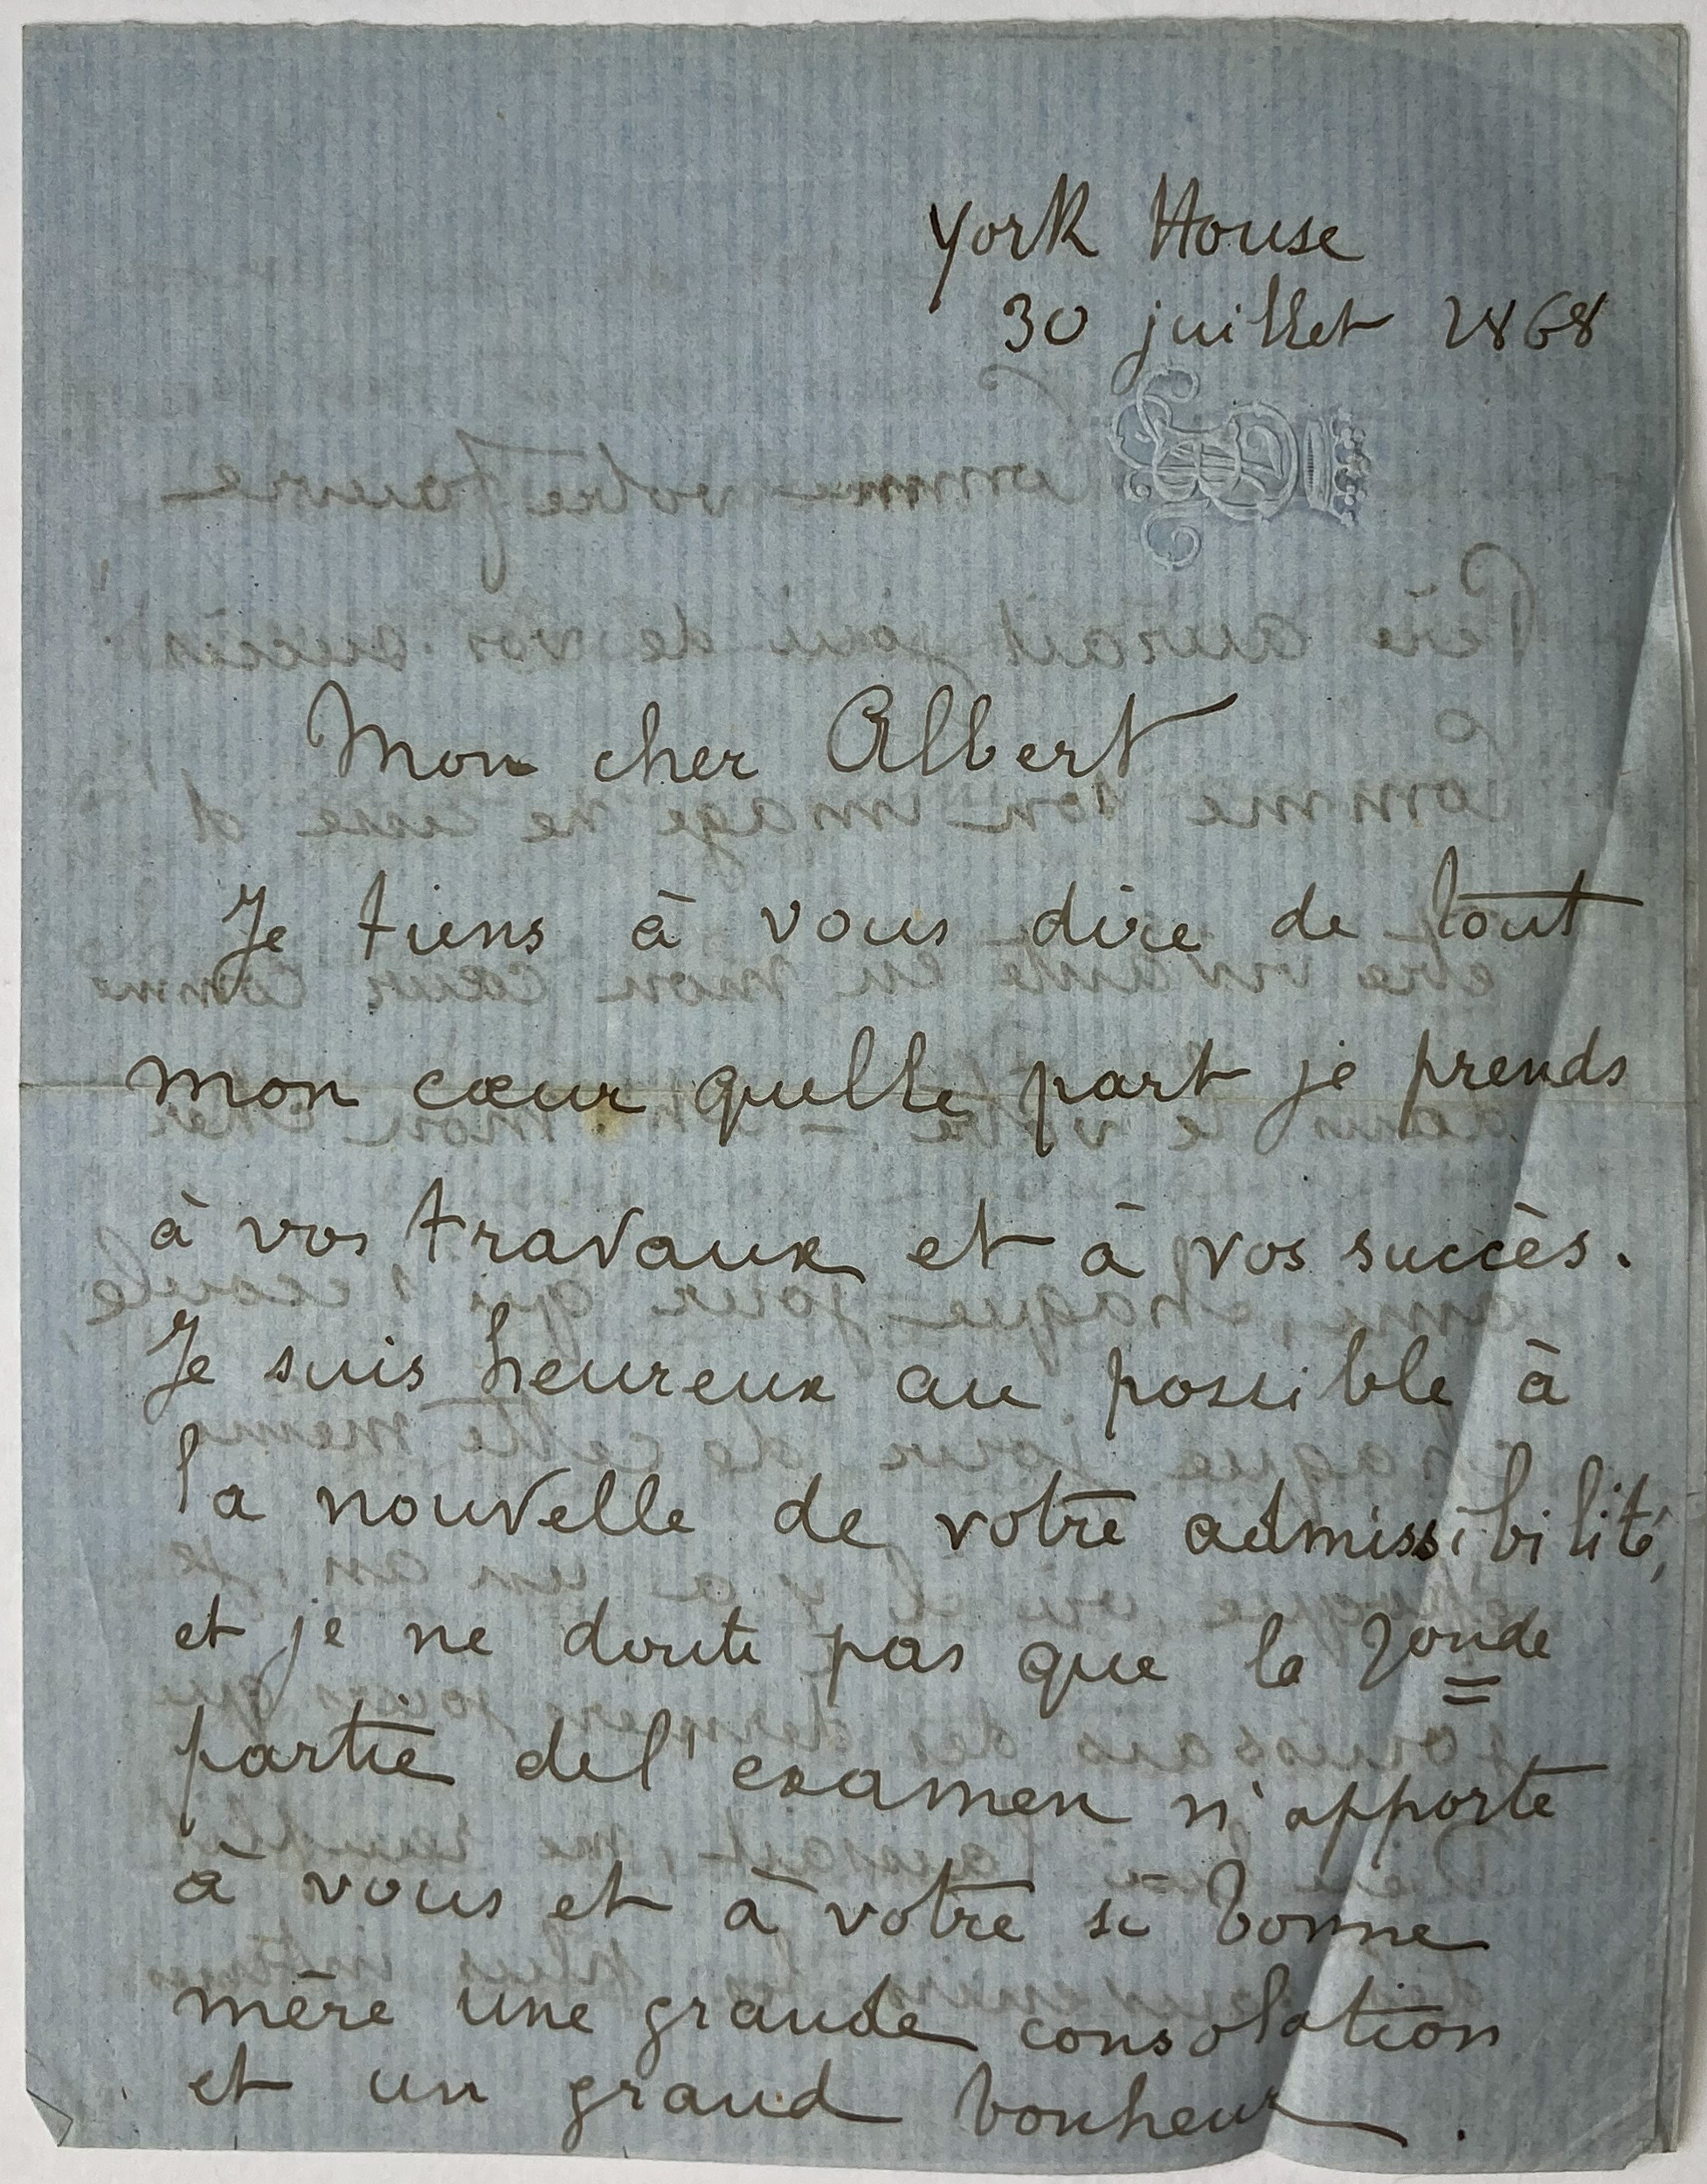 York House
30 juillet 1868
Mon cher Albert
Je tiens à vous dire de tout
mon cœur quelle part je prends
à vos travaux et à vos succès.
Je suis heureux au possible à
la nouvelle de votre admissibilité,
et je ne doute pas que la 2onde
partie de l'examen n'apporte
à vous et à votre si bonne
mère une grande consolation
et un grand bonheur.